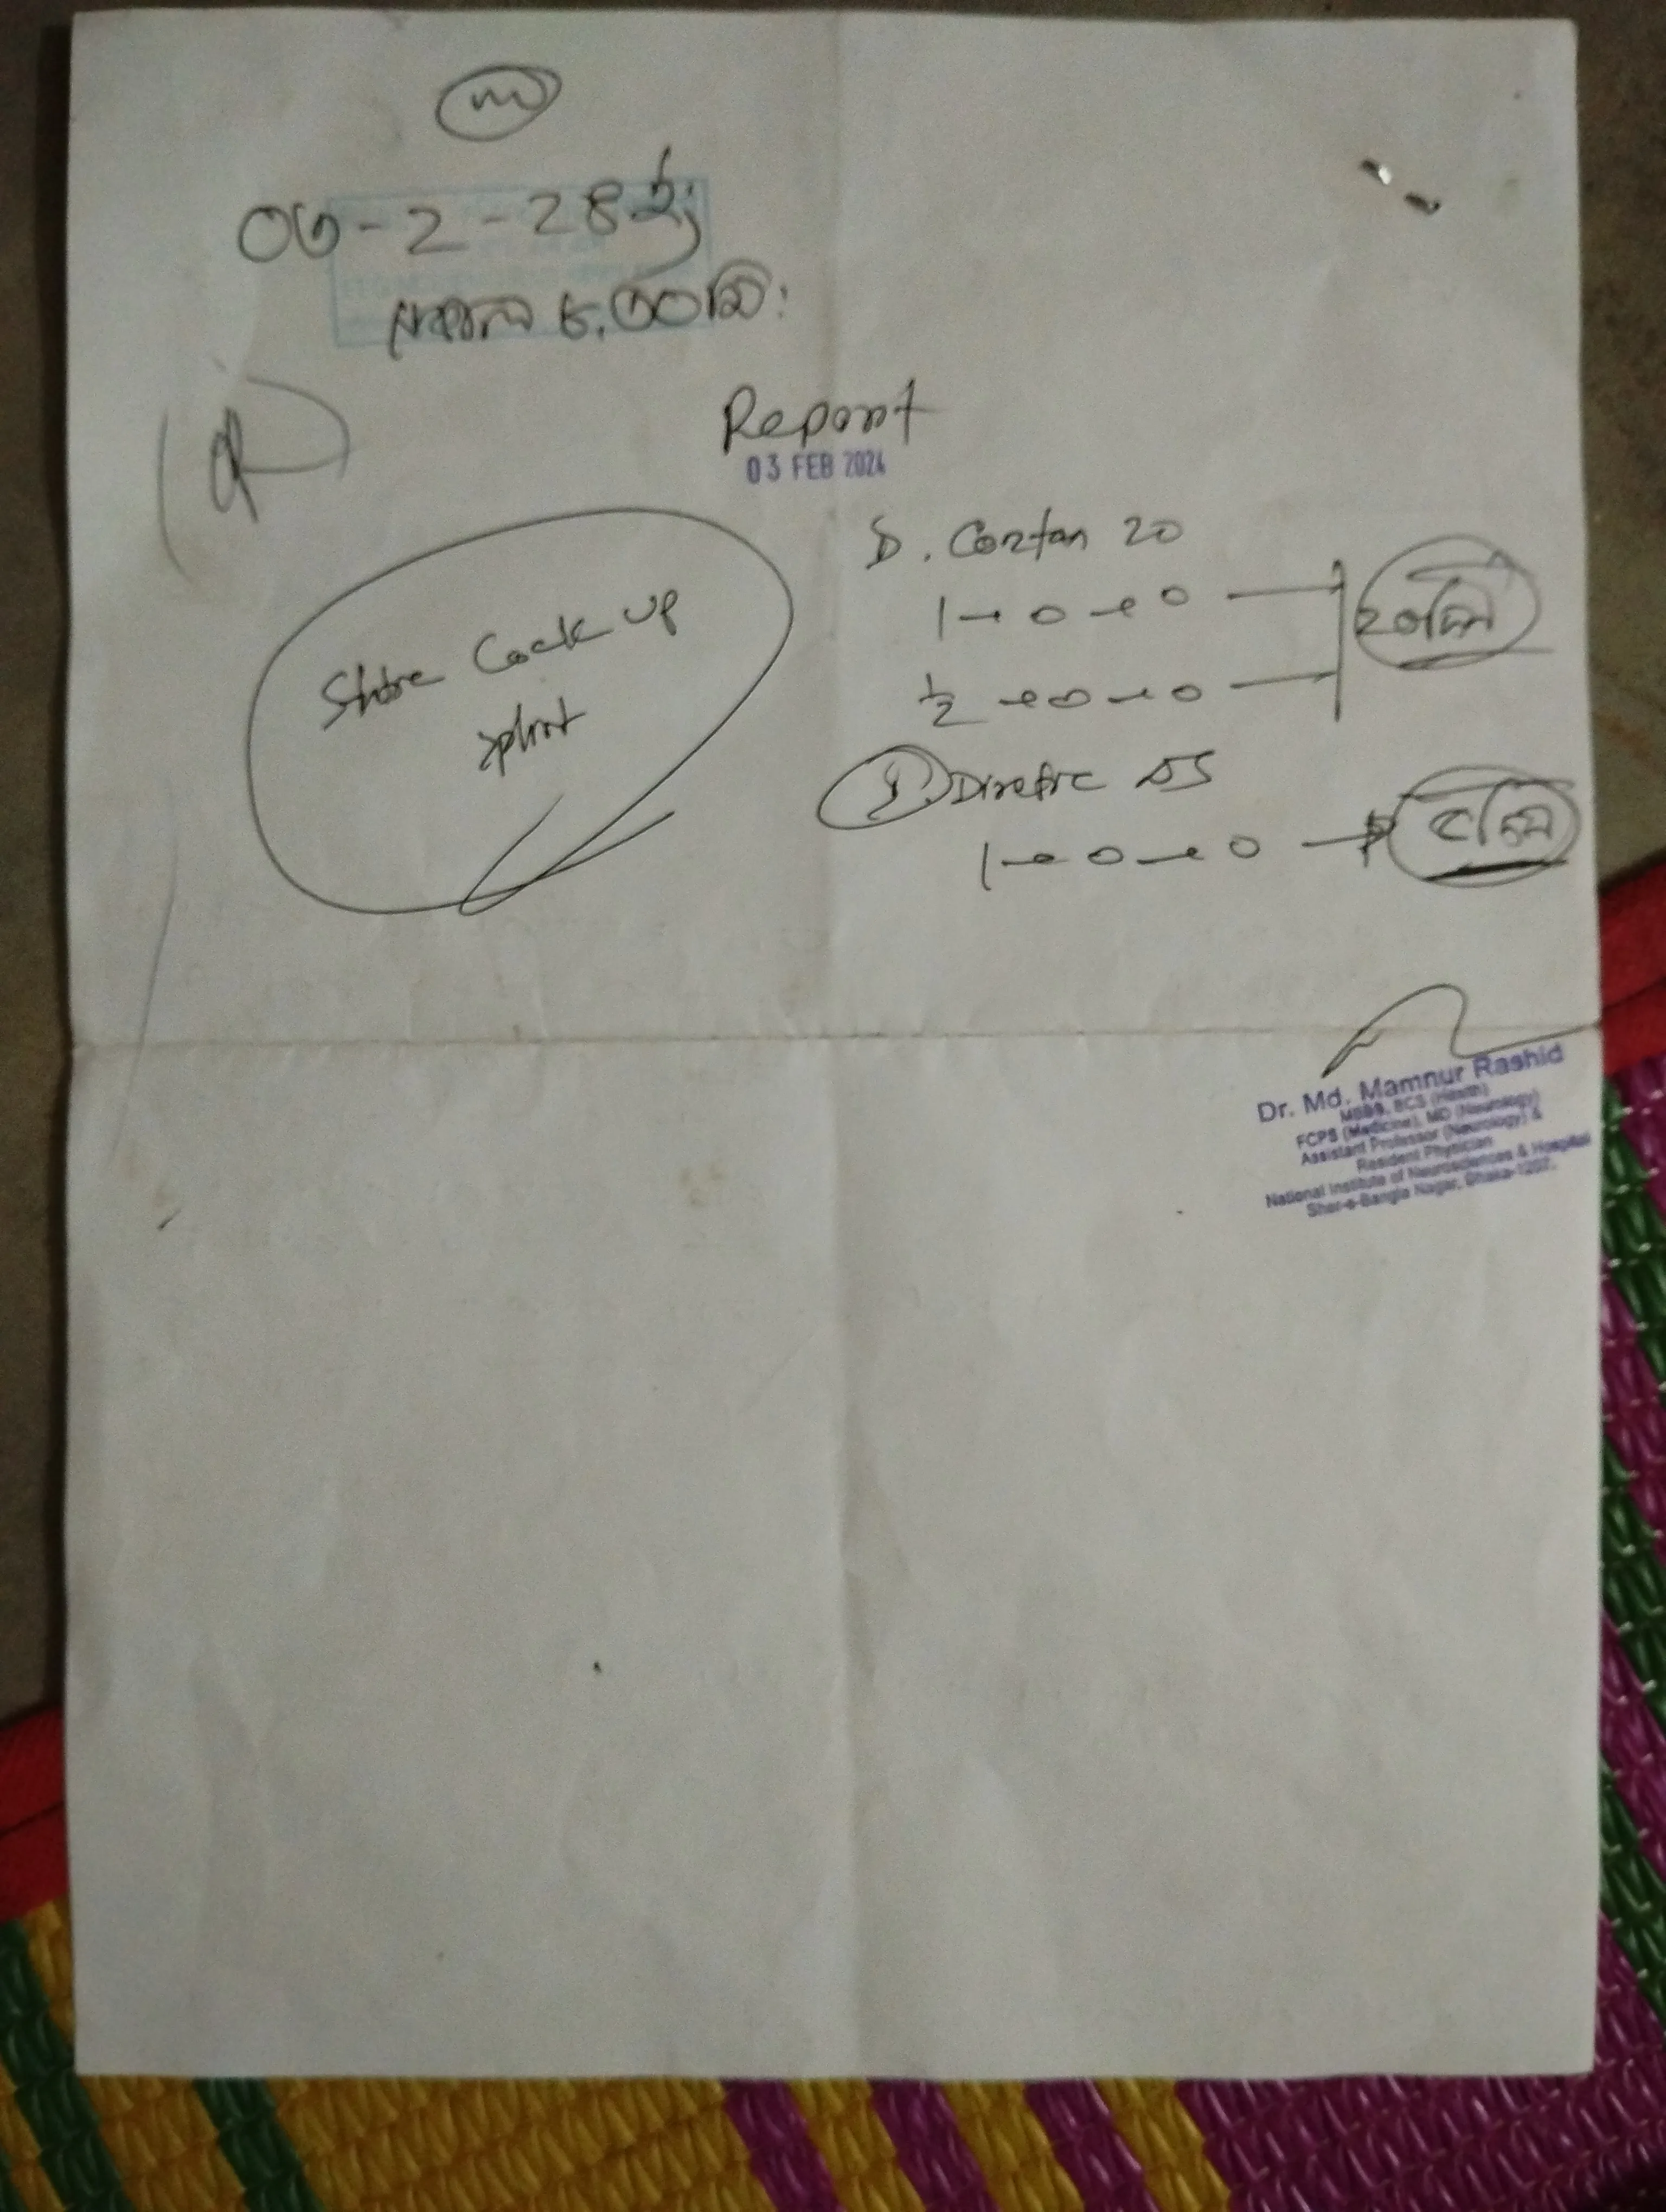 ০৩-২-২৪ইং
সকাল ৮.৩০মি:
Report
03 FEB 2024
Cortan 20
1 - 0 - 0
½ - 0 - 0
২০দিন
Static Cock up
splint
DS
1 - 0 - 0
৫দিন
Dr. Md. Mamnur Rashid
MBBS, BCS (Health)
FCPS (Medicine), MD (Neurology)
Assistant Professor (Neurology) &
Resident Physician
National Institute of Neurosciences & Hospital
Sher-e-Bangla Nagar, Dhaka-1207.